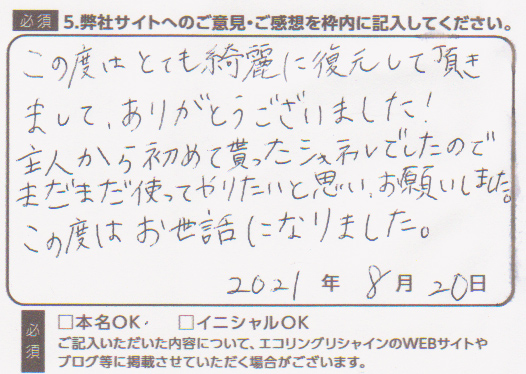 必須 5.弊社サイトへのご意見・ご感想を枠内に記入してください。
この度はとても綺麗に復元して頂き
まして、ありがとうございました!
主人から初めて貰ったシャネルでしたので
まだまだ使ってやりたいと思い、お願いしました。
この度はお世話になりました。
2021 年 8 月 20 日
必須
□本名OK □イニシャルOK
ご記入いただいた内容について、エコリングリシャインのWEBサイトや
ブログ等に掲載させていただく場合がございます。